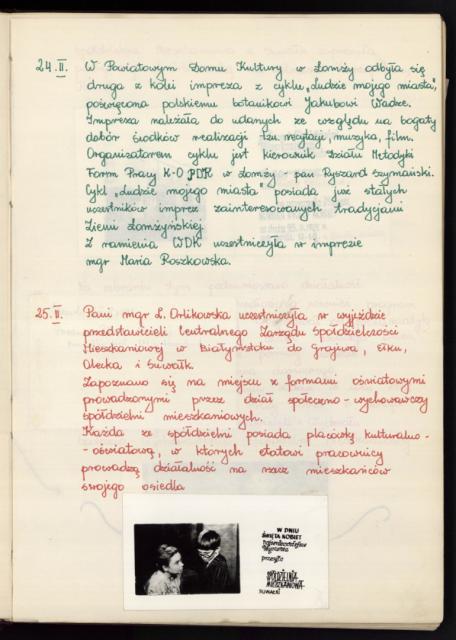 24.II. W Powiatowym Domu Kultury w Łomży odbyła się
druga z kolei impreza z cyklu „Ludzie mojego miasta",
poświęcona polskiemu botanikowi Jakubowi Wadze.
Impreza należała do udanych ze względu na bogaty
dobór środków realizacji tzn. recytacji, muzyka, film.
Organizatorem cyklu jest kierownik Działu Metodyki
Form Pracy K-O PDK w Łomży - pan Ryszard Szymański.
Cykl „Ludzie mojego miasta" posiada już stałych
uczestników imprez zainteresowanych tradycjami
Ziemi Łomżyńskiej.
Z ramienia WDK uczestniczyła w imprezie
mgr Maria Roszkowska.
25.II. Pani mgr L. Orlikowska uczestniczyła w wyjeździe
przedstawicieli Centralnego Zarządu Spółdzielczości
Mieszkaniowej w Białymstoku do Grajewa, Ełku,
Olecka i Suwałk.
Zapoznano się na miejscu z formami oświatowymi
prowadzonymi przez dział społeczno-wychowawczy
spółdzielni mieszkaniowych.
Każda ze spółdzielni posiada placówkę kulturalno-
-oświatową, w których etatowi pracownicy
prowadzą działalność na rzecz mieszkańców
swojego osiedla
W DNIU
ŚWIĘTA KOBIET
najserdeczniejsze
życzenia
przesyła
SPÓŁDZIELNIA
MIESZKANIOWA
SUWAŁKI